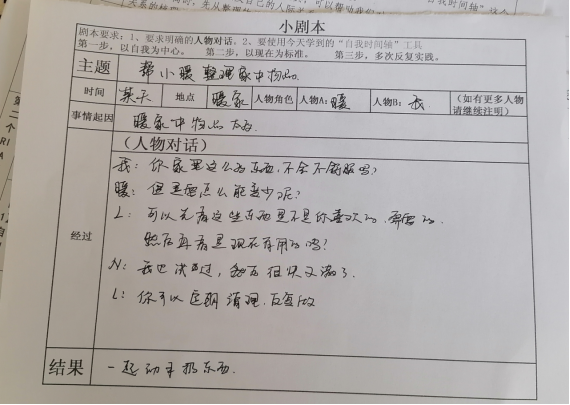 小剧本
剧本要求：1、要求明确的人物对话，2、要使用今天学到的“自我时间轴”工具
第一步，以自我为中心。 第二步，以现在为标准。 第三步，多次反复实践。
主题 帮小暖整理家中物品.
时间 某天 地点 暖家 人物角色 人物A：暖 人物B：我 （如有更多人物请继续注明）
事情起因 暖家中物品太多.
（人物对话）
我：你家里这么多东西,不会不舒服吗?
暖：但是要怎么能变少呢?
经过
L：可以先看这些东西是不是你喜欢的、需要的.
然后再看是现在有用的吗?
N：我也决过，但很快又满了.
L：你可以定期清理.反复做
结果 一起动手扔东西.